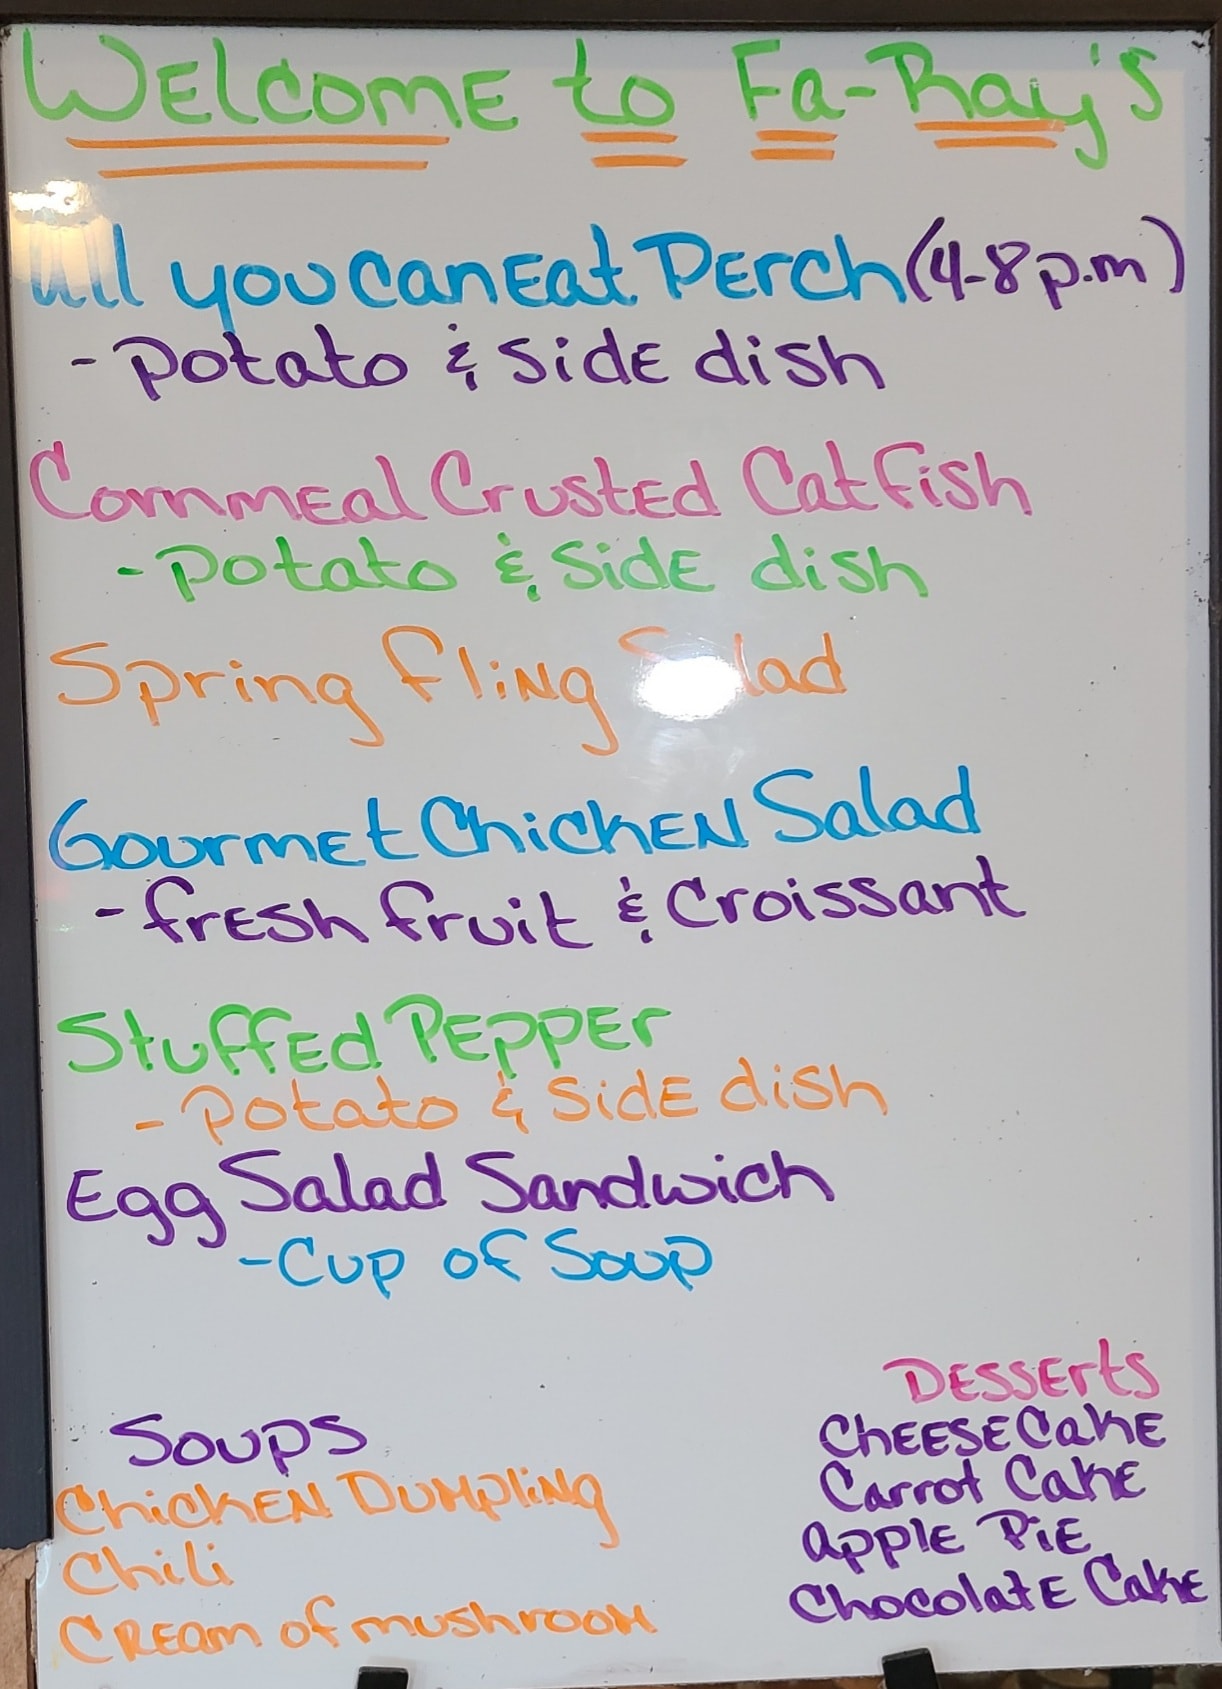 Welcome to Fa-Ray's
All you can Eat Perch (4-8 p.m)
- Potato & Side dish
Cornmeal Crusted Catfish
- Potato & Side dish
Spring Fling Salad
Gourmet Chicken Salad
- fresh fruit & Croissant
Stuffed Pepper
- Potato & Side dish
Egg Salad Sandwich
- Cup of Soup
Soups
Chicken Dumpling
Chili
Cream of mushroom
Desserts
Cheese Cake
Carrot Cake
Apple Pie
Chocolate Cake